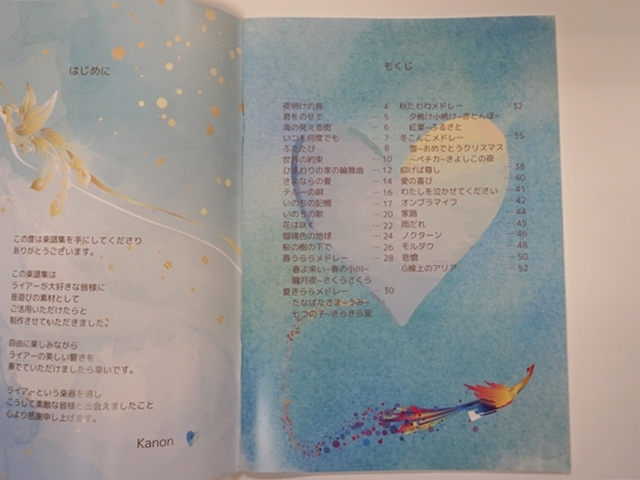 はじめに
この度は楽譜集を手にしてくださり
ありがとうございます。
この楽譜集は
ライアーが大好きな皆様に
音遊びの素材として
ご活用いただけたらと
制作させていただきました。
自由に楽しみながら
ライアーの美しい響きを
奏でていただけましたら幸いです。
ライアーという楽器を通し
こうして素敵な皆様と出会えましたこと
心より感謝申し上げます。
Kanon
もくじ
夜明けの鳥 4
君をのせて … 5
海の見える街 … 6
いつも何度でも … 7
ふたたび … 8
世界の約束 … 10
ひまわりの家の輪舞曲 … 12
さよならの夏 … 14
テルーの唄 … 16
いのちの記憶 … 17
いのちの歌 … 20
花は咲く … 22
瑠璃色の地球 … 24
桜の樹の下で … 26
春うららメドレー … 28
春よ来い~春の小川~
朧月夜~さくらさくら
夏きららメドレー … 30
たなばたさま~うみ~
七つの子~きらきら星
秋たわわメドレー … 32
夕焼け小焼け~赤とんぼ~
紅葉~ふるさと
冬こんこメドレー … 35
雪~おめでとうクリスマス
~ペチカ~きよしこの夜
仰げば尊し … 38
愛の喜び … 40
わたしを泣かせてください … 41
オンブラマイフ … 42
家路 … 44
雨だれ … 45
ノクターン … 46
モルダウ … 48
悲愴 … 50
G線上のアリア … 52